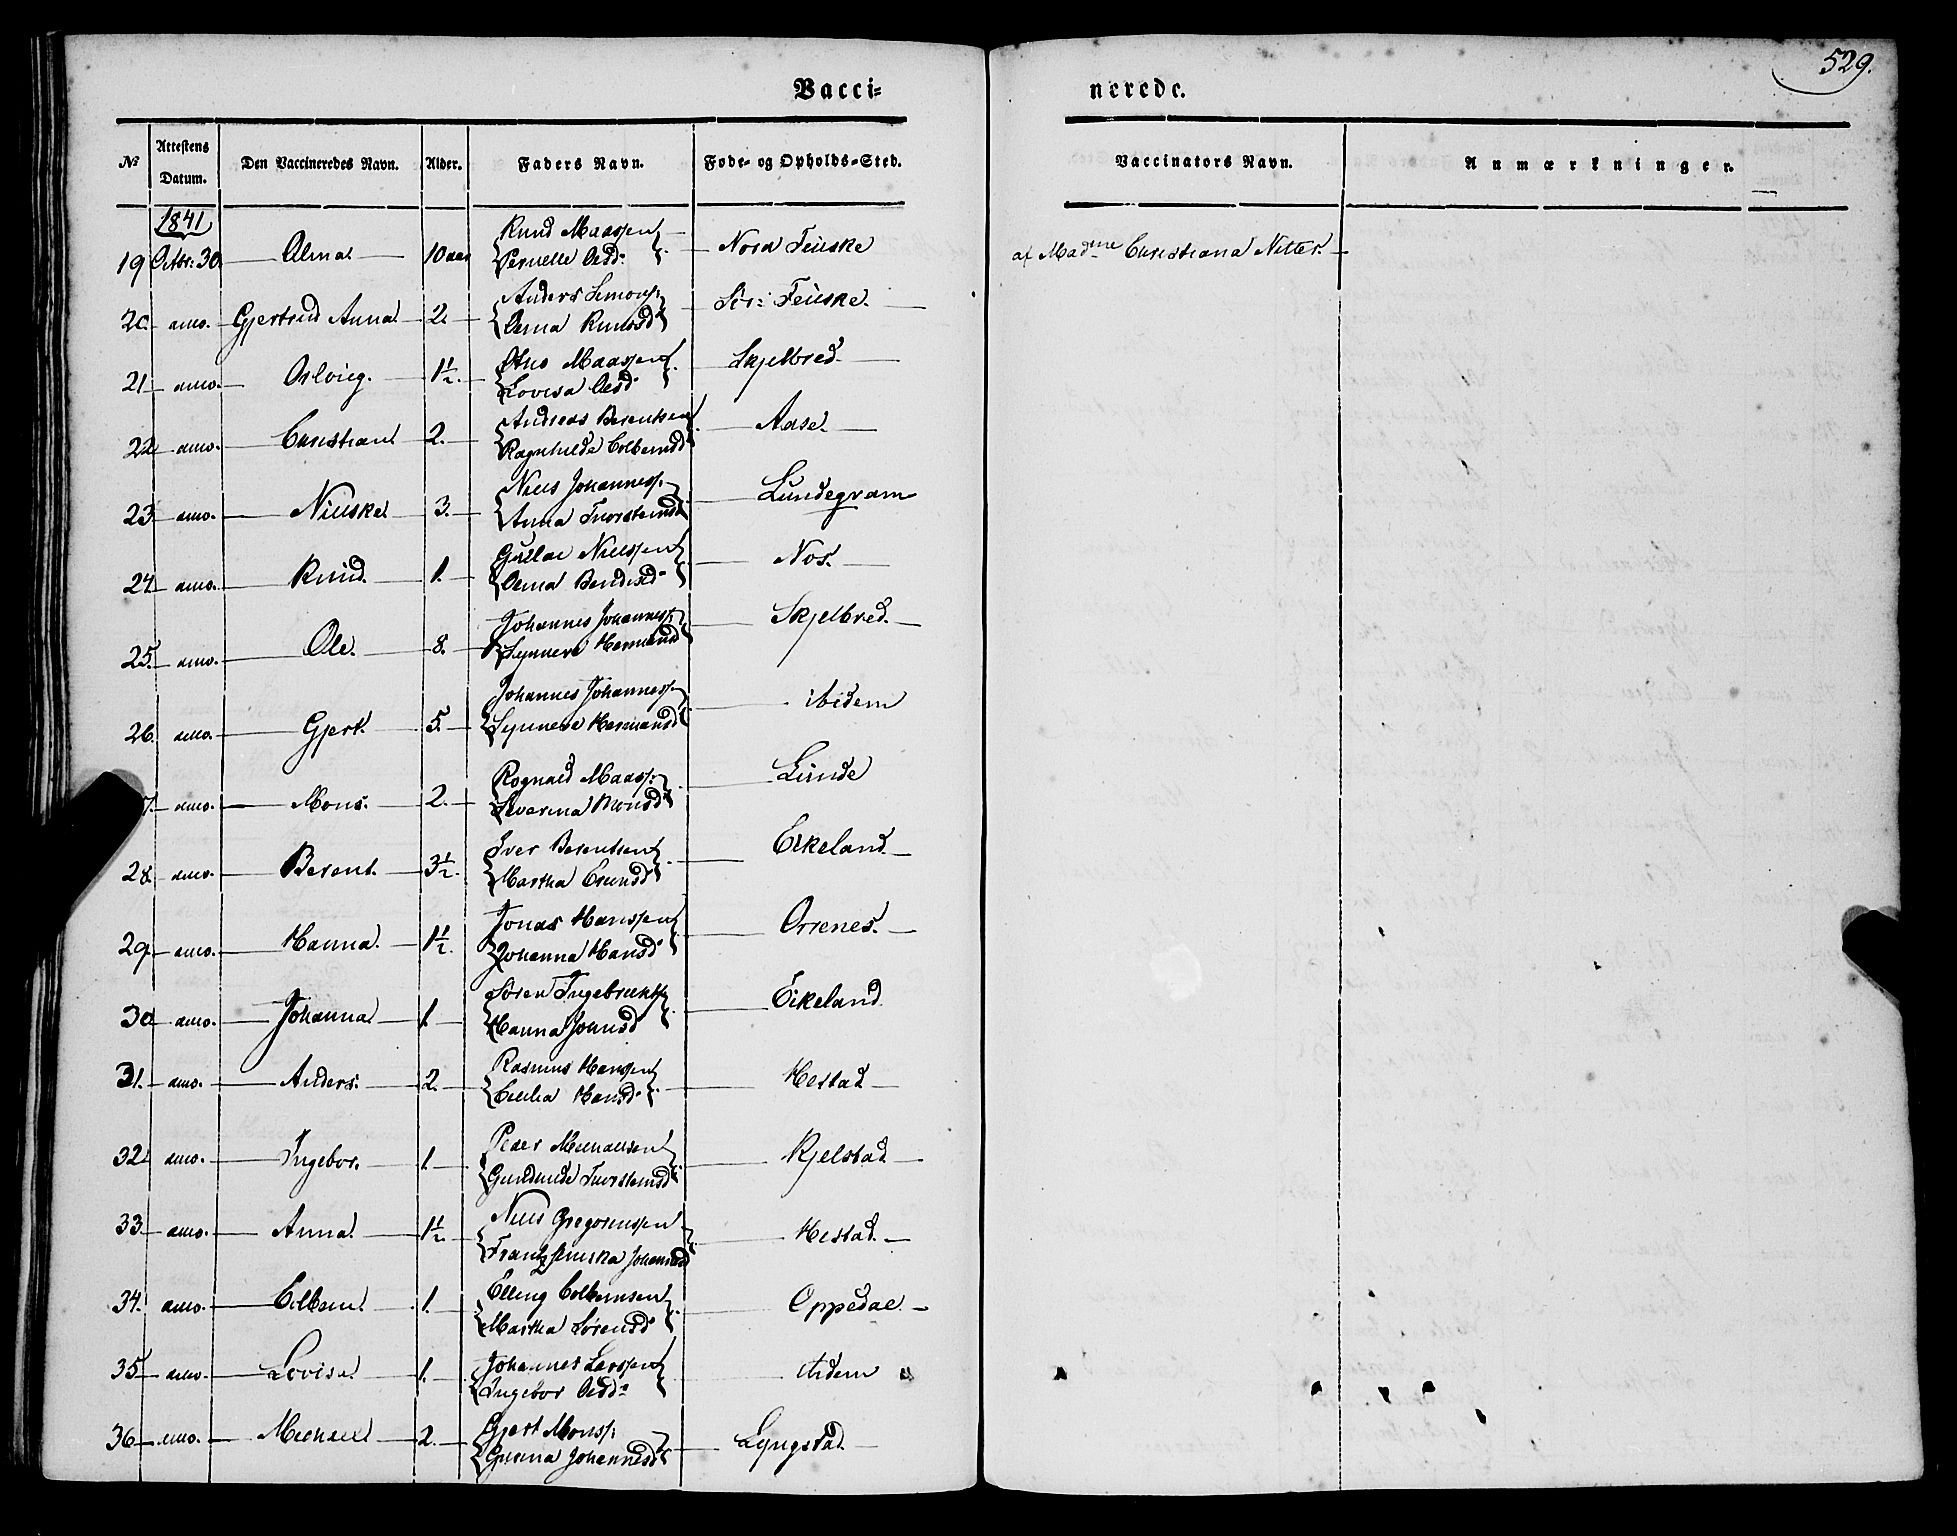 529.
Vacci- nerede.
No Attestens Datum. Den Vaccineredes Navn. Alder. Faders Navn. Føde- og Opholds-Sted. Vaccinators Navn. Anmærkninger.
1841
19 Octbr: 30 Olina 10 aar Knud Maassen Pernelle Olsd: Nord Feuske af Madme Christiana Nitter.
20. dito. Gjertrud Anna 2. Anders Simons: Oline Knudsd Sør: Feuske.
21 dito. Oslvieg. 1½. Otto Maassen Lovisa Olsd Skjelbred
22 dito. Christian 2. Andreas Berentsen Ragnhilde Colbeinsd Aase.
23 dito. Nilske 3. Niels Johanness. Anna Thorsteinsd Lundegram
24 dito. Knud. 1. Gullac Nielssen Olina Bendixd Nos.
25. dito. Ole. 8. Johannes Johanness. Synneve Hermansd Skjelbred.
26. dito. Gjert. 5. Johannes Johanness. Synneve Hermansd ibidem
7. dito. Mons. 2. Rognald Maass: Severina Monsd Lunde
28. dito. Berent. 3½. Iver Berentsen Martha Erensd Eikeland
29. dito. Hanna. 1½. Jonas Hanssen Johanna Hansd Orrenes.
30 dito. Johanna 1. Søren Ingebricths. Hanna Johnsd Eikeland.
31. dito. Anders. 2. Rasmus Hanssen Cecilia Hansd Hestad
32 dito. Ingebor. 1. Peder Michaelsen Gundhilde Thorsteinsd Kjelstad
33. dito. Anna. 1½. Niels Gregoriussen Frantzsinska Johannesd Hestad.
34. dito. Colbein 1. Elling Colbeinsen Martha Sørensd Oppedal.
35 dito. Lovise 1. Johannes Larssen Ingebor Olsd: ibidem
36 dito. Michael 2. Gjert Monss: Gurina Johannesd Lyngstad.